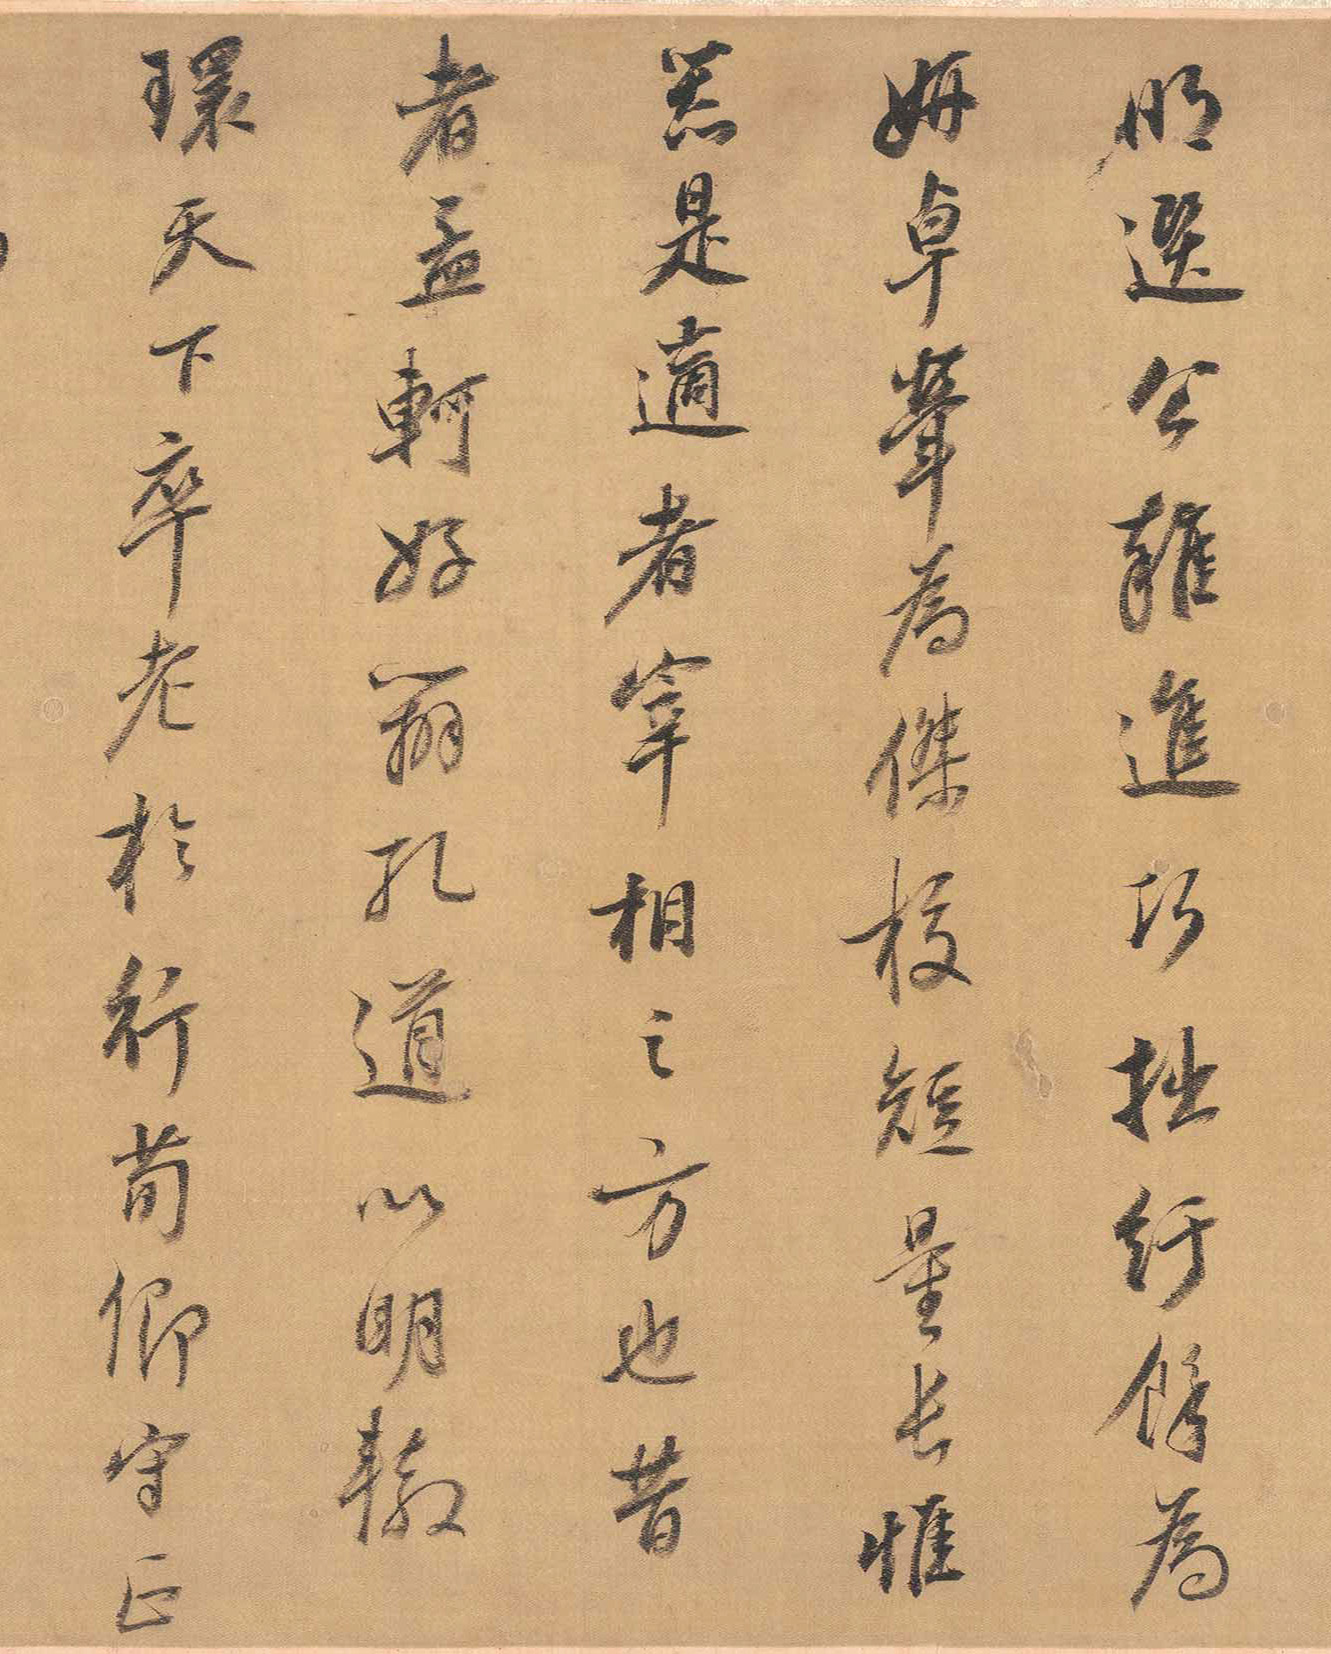 明選公雜進巧拙紆餘為
妍卓犖為傑校短量長惟
器是適者宰相之方也昔
者孟軻好辯孔道以明轍
環天下卒老於行荀卿守正